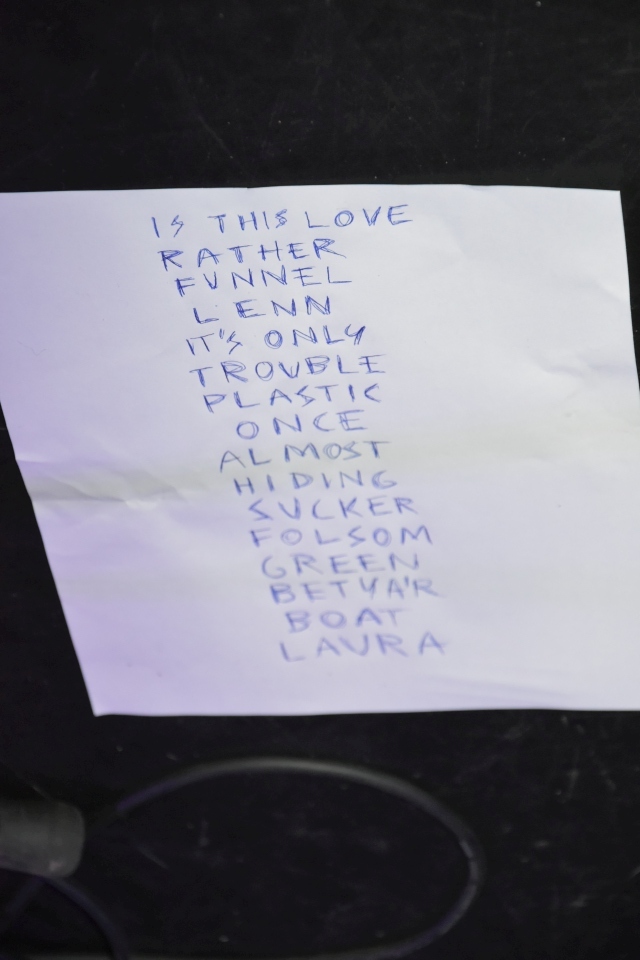 IS THIS LOVE
RATHER
FUNNEL
LENN
IT'S ONLY
TROUBLE
PLASTIC
ONCE
ALMOST
HIDING
SUCKER
FOLSOM
GREEN
BETYA'R
BOAT
LAURA